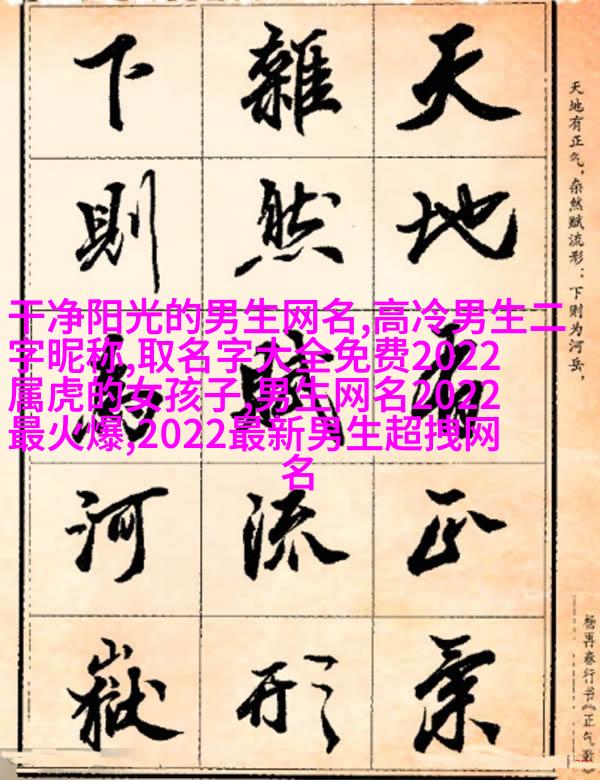 天地有正氣
雜然賦流形
下則為河嶽
天地有正气，杂然赋流形：下则为河岳，
杨再春行书《正气歌》
干净阳光的男生网名,高冷男生二
字昵称,取名字大全免费2022
属虎的女孩子,男生网名2022
最火爆,2022最新男生超拽网
名